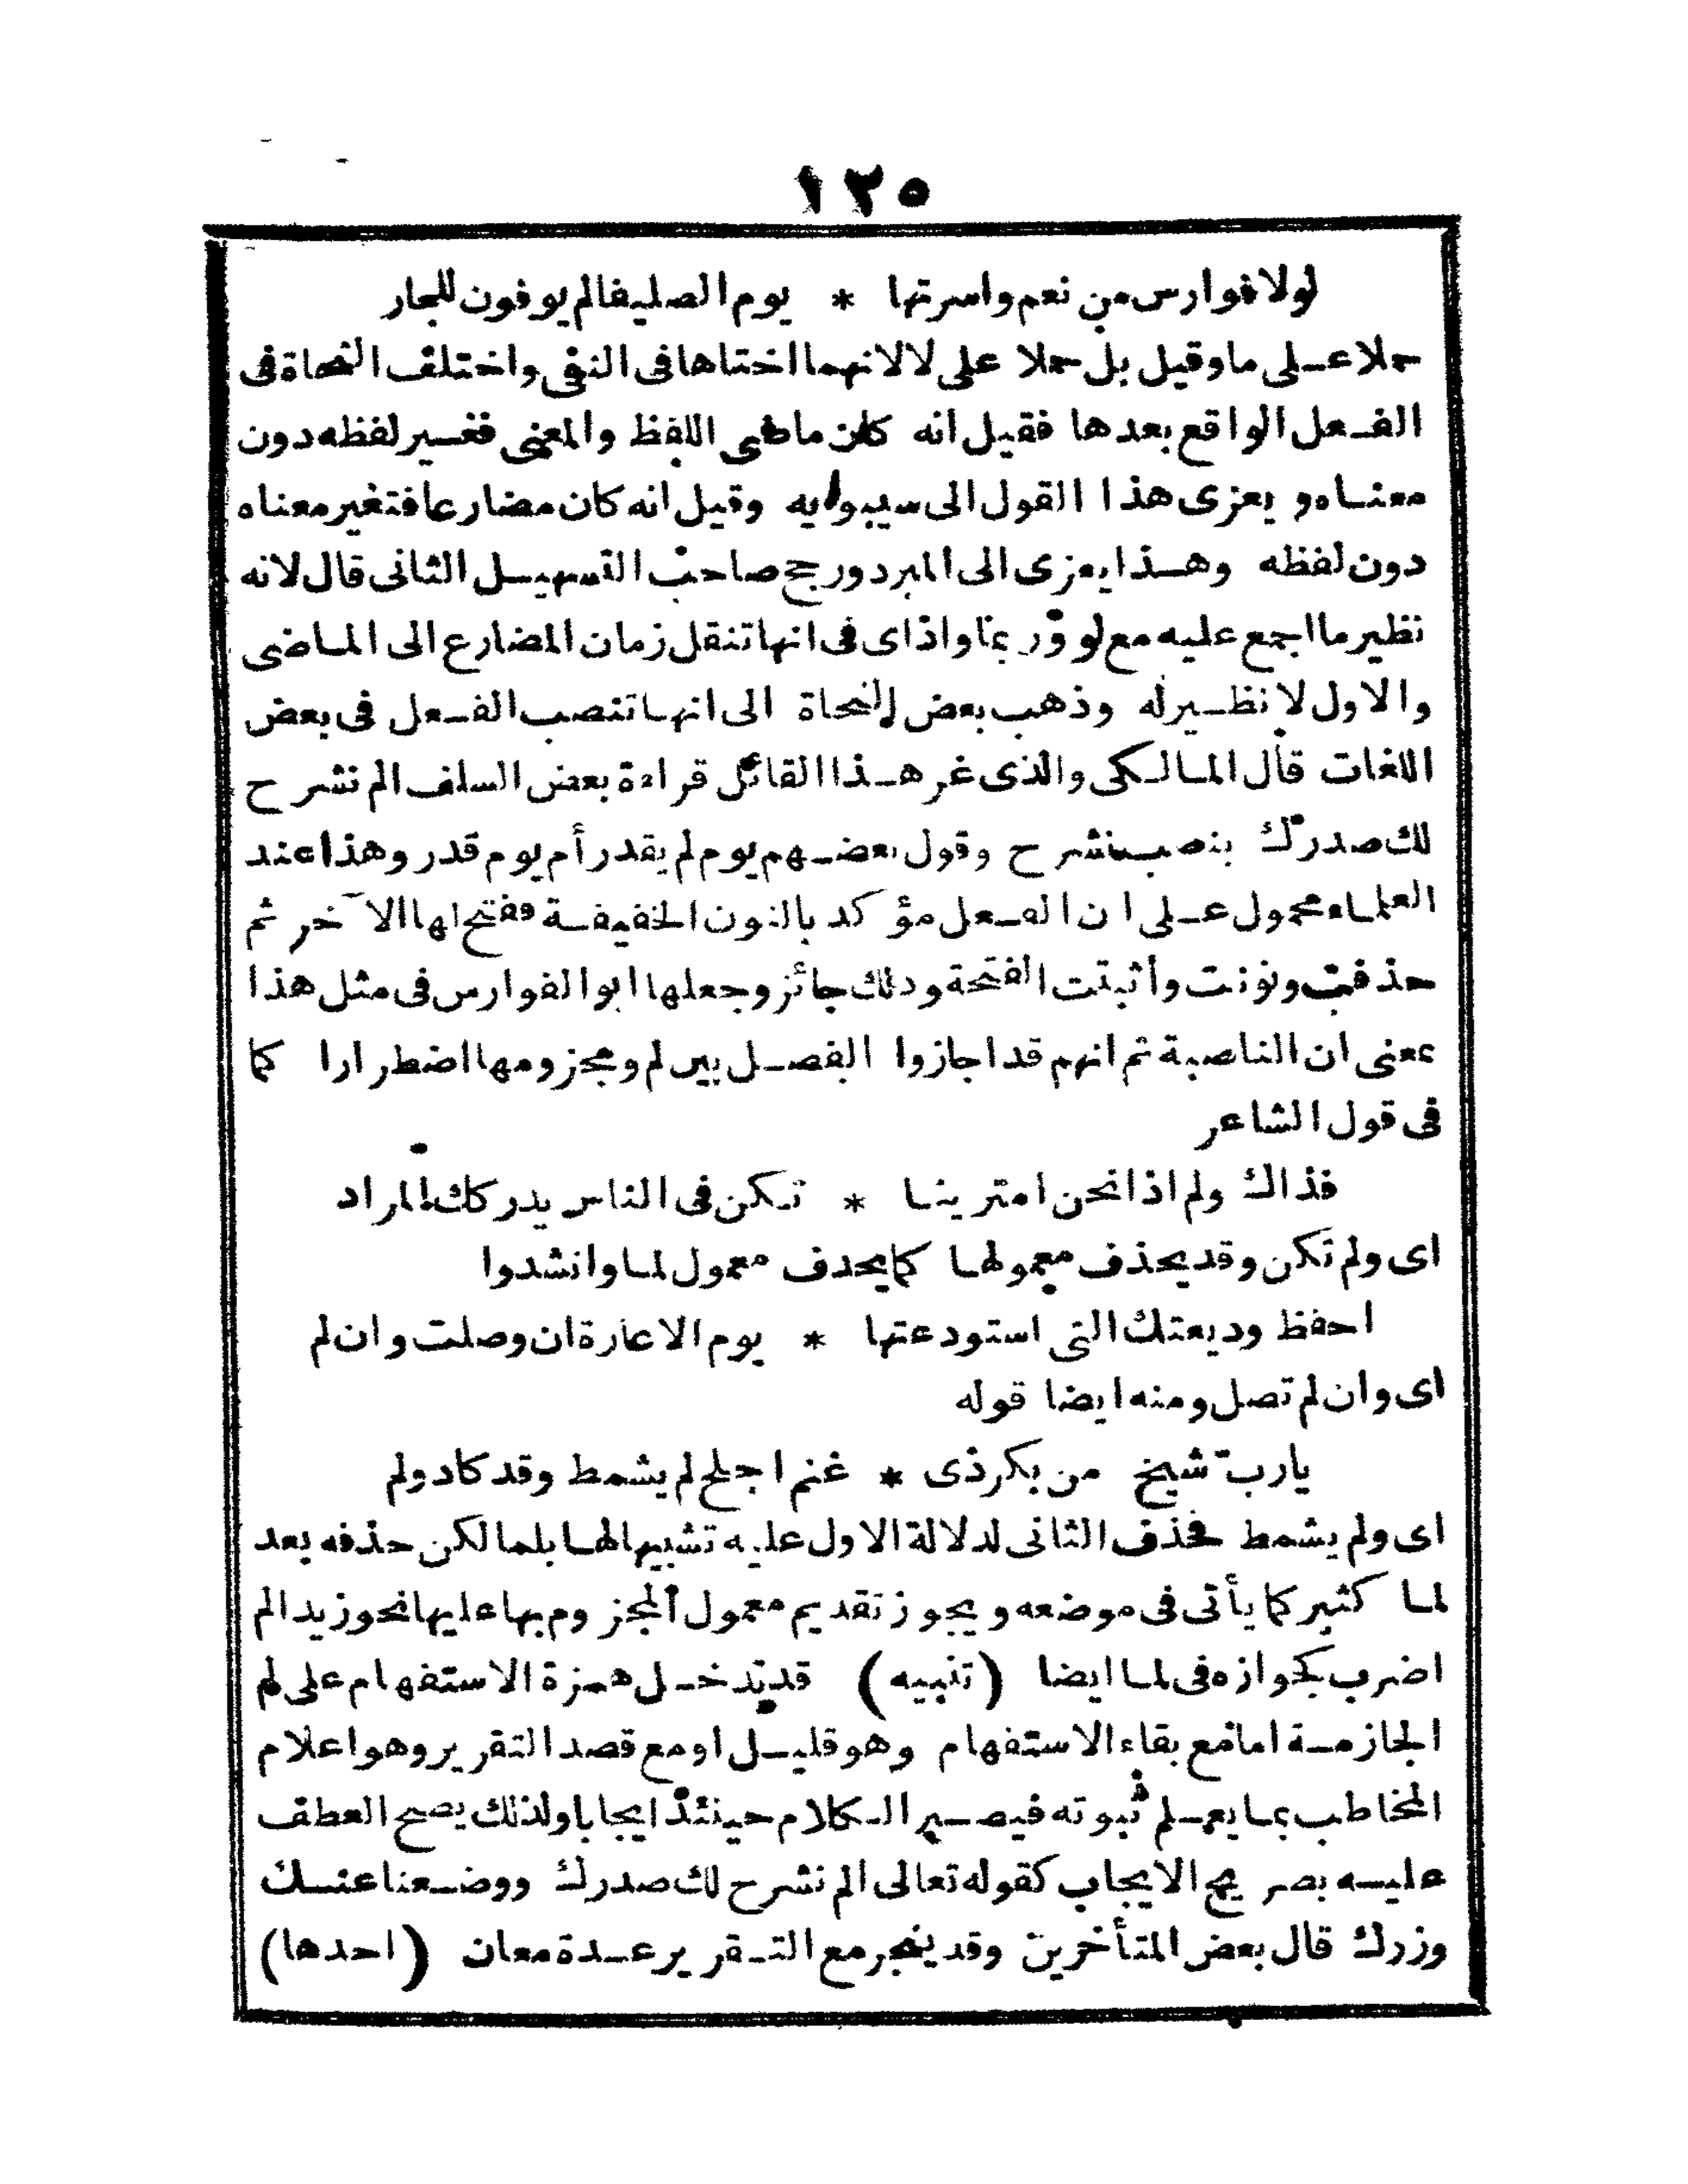 ١٢٥
لولا فوارس من نعم واسرتها * يوم الصليفا لم يوفون للجار
حملا عـلى ما وقيل بل حملا على لا لانهما اختاها فى النفى واختلف النحاة فى
الفـعل الواقع بعدها فقيل انه كان ماضى اللفظ والمعنى فغـير لفظه دون
معنـاه و يعزى هذا القول الى سيبوايه وقيل انه كان مضارعا فتغير معناه
دون لفظه وهـذا يعزى الى المبرد ورجح صاحب التسهيـل الثانى قال لانه
نظير ما اجمع عليه مع لو وربما واذ اى فى انها تنقل زمان المضارع الى المـاضى
والاول لا نظـير له وذهب بعض النحاة الى انهـا تنصب الفـعل فى بعض
اللغات قال المـالـكى والذى غر هـذا القائل قراءة بعض السلف الم نشرح
لك صدرك بنصب نشرح وقول بعضـهم يوم لم يقدر أم يوم قدر وهذا عند
العلمـاء محمول عـلى ان الفـعل مؤكد بالنون الخفيفـة ففتح لها الآخر ثم
حذفت ونونت وأثبتت الفتحة وذلك جائز وجعلها ابو الفوارس فى مثل هذا
بمعنى ان الناصبة ثم انهم قد اجازوا الفصـل بين لم ومجزومها اضطرارا كما
فى قول الشاعر
فذاك ولم اذا نحن امترينـا * تـكن فى الناس يدركك المراد
اى ولم تكن وقد يحذف معمولهـا كما يحذف معمول لمـا وانشدوا
احفظ وديعتك التى استودعتها * يوم الاعارة ان وصلت وان لم
اى وان لم تصل ومنه ايضا قوله
يارب شيخ من بكر ذى * غنم اجلح لم يشمط وقد كاد ولم
اى ولم يشمط فحذف الثانى لدلالة الاول عليه تشبيها لهـا بلما لكن حذفه بعد
لمـا كثير كما يأتى فى موضعه و يجوز تقديم معمول المجزوم بها عليها نحو زيدا لم
اضرب كجوازه فى لمـا ايضا (تنبيه) قد تدخـل همزة الاستفهام على لم
الجازمـة اما مع بقاء الاستفهام وهو قليـل او مع قصد التقرير وهو اعلام
المخاطب بمـا يعـلم ثبوته فيصـير الـكلام حينئذ ايجابا ولذلك يصح العطف
عليـه بصريح الايجاب كقوله تعالى الم نشرح لك صدرك ووضـعنا عنـك
وزرك قال بعض المتأخرين وقد ينجر مع التـقرير عـدة معان (احدها)